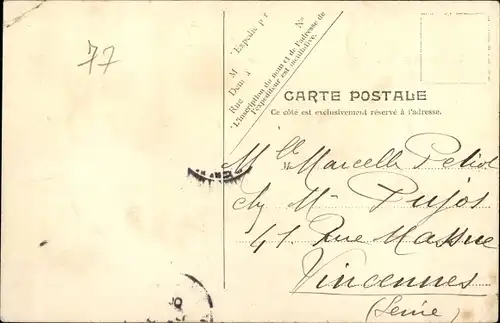 77
Expédié p
M
Dem
Rue N°
L'inscription du nom et de l'adresse de
l'expéditeur est facultative.
CARTE POSTALE
Ce côté est exclusivement réservé à l'adresse.
Mlle Marcelle
chz M Pujos
41 Rue Massue
Vincennes
(Seine)